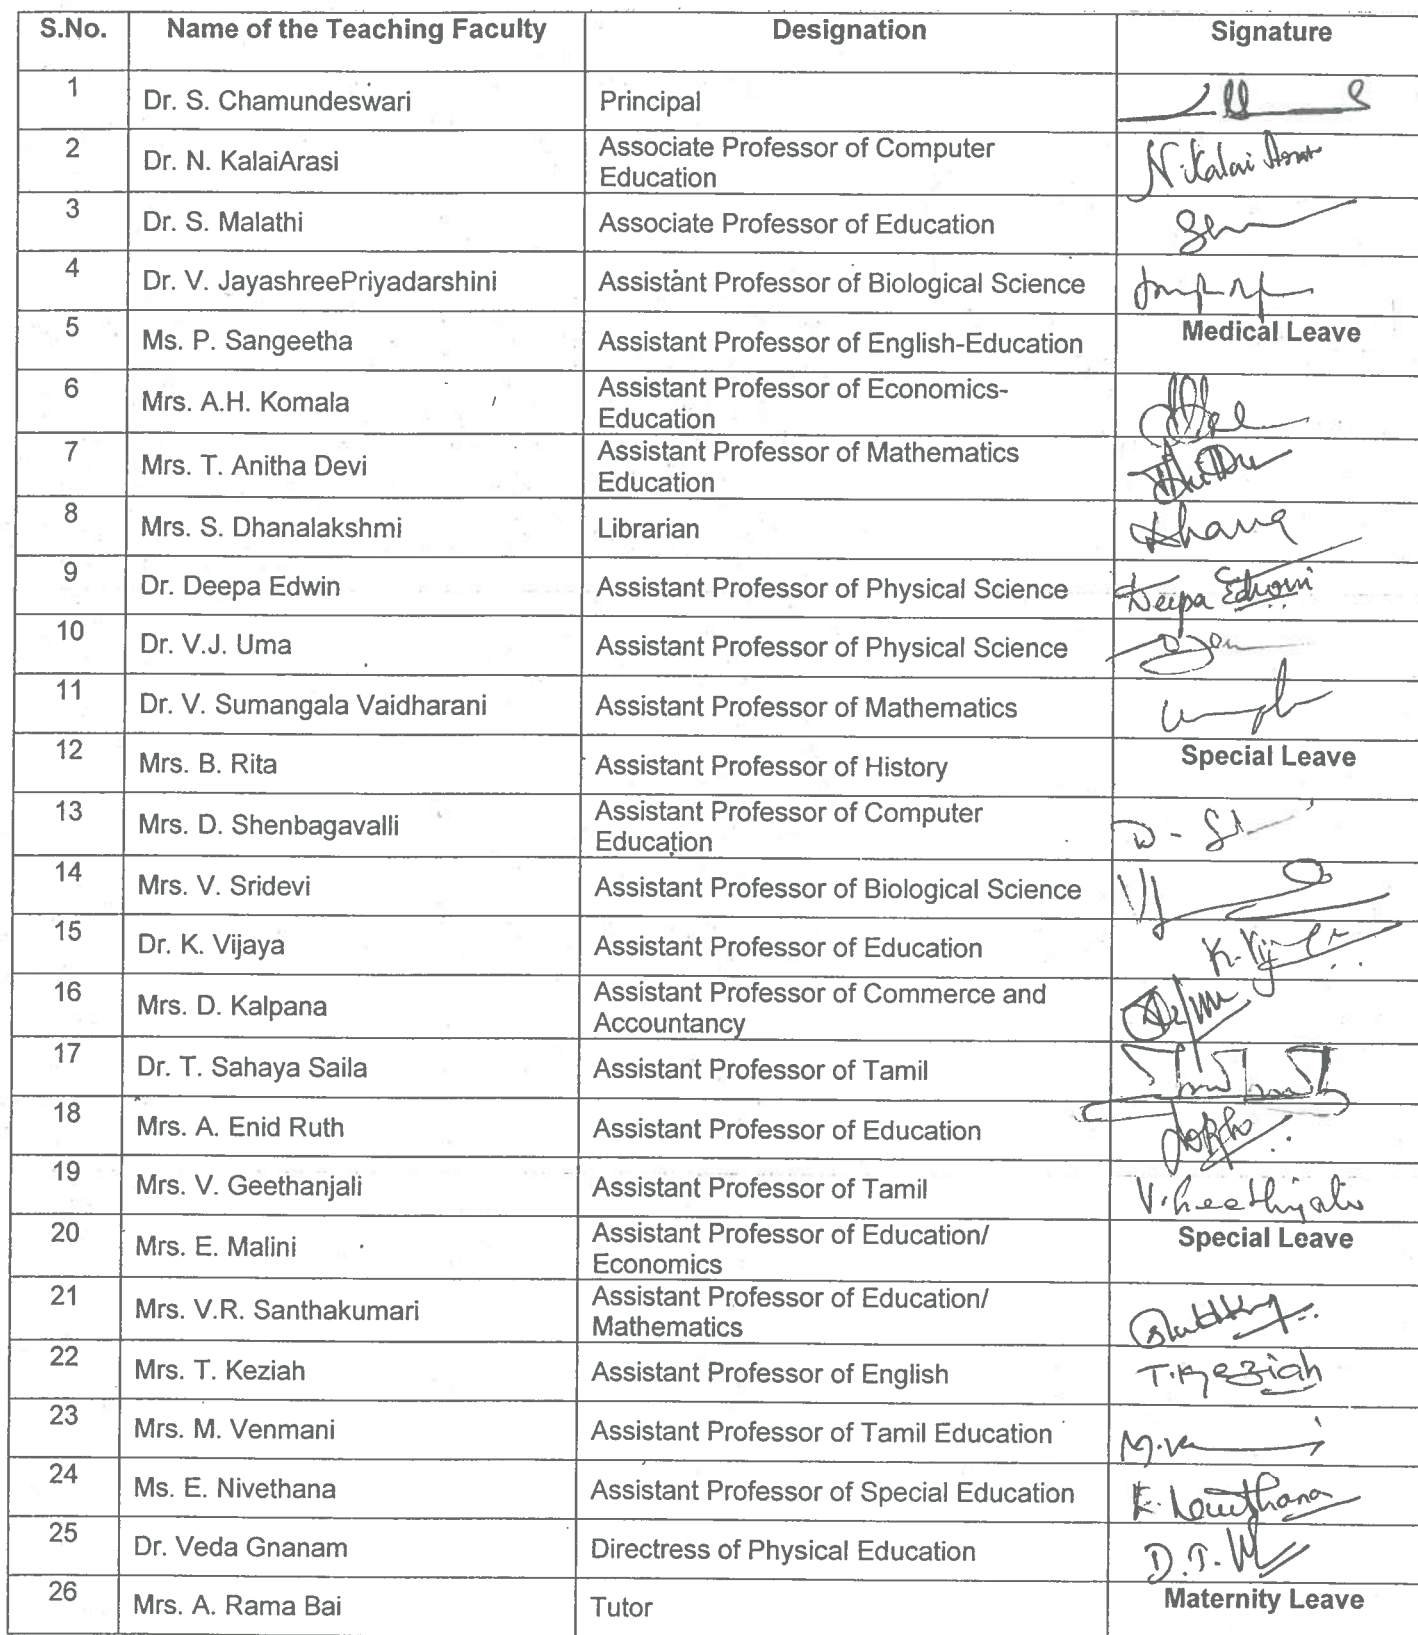 S.No. Name of the Teaching Faculty Designation Signature
1 Dr. S. Chamundeswari Principal
2 Dr. N. KalaiArasi Associate Professor of Computer
Education N. Kalai Arasi
3 Dr. S. Malathi Associate Professor of Education
4 Dr. V. JayashreePriyadarshini Assistant Professor of Biological Science
5 Ms. P. Sangeetha Assistant Professor of English-Education Medical Leave
6 Mrs. A.H. Komala Assistant Professor of Economics-
Education
7 Mrs. T. Anitha Devi Assistant Professor of Mathematics
Education
8 Mrs. S. Dhanalakshmi Librarian Dhana
9 Dr. Deepa Edwin Assistant Professor of Physical Science Deepa Edwin
10 Dr. V.J. Uma Assistant Professor of Physical Science
11 Dr. V. Sumangala Vaidharani Assistant Professor of Mathematics
12 Mrs. B. Rita Assistant Professor of History Special Leave
13 Mrs. D. Shenbagavalli Assistant Professor of Computer
Education
14 Mrs. V. Sridevi Assistant Professor of Biological Science
15 Dr. K. Vijaya Assistant Professor of Education
16 Mrs. D. Kalpana Assistant Professor of Commerce and
Accountancy
17 Dr. T. Sahaya Saila Assistant Professor of Tamil
18 Mrs. A. Enid Ruth Assistant Professor of Education
19 Mrs. V. Geethanjali Assistant Professor of Tamil V. Geethanjali
20 Mrs. E. Malini Assistant Professor of Education/
Economics Special Leave
21 Mrs. V.R. Santhakumari Assistant Professor of Education/
Mathematics
22 Mrs. T. Keziah Assistant Professor of English T. Keziah
23 Mrs. M. Venmani Assistant Professor of Tamil Education
24 Ms. E. Nivethana Assistant Professor of Special Education E. Nivethana
25 Dr. Veda Gnanam Directress of Physical Education
26 Mrs. A. Rama Bai Tutor Maternity Leave